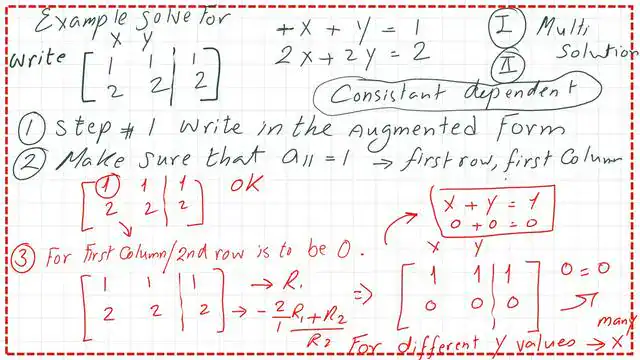 Example solve for
+x + y = 1
I Multi
X Y
2x + 2y = 2
Solution
write [ 1 1 | 1
2 2 | 2 ]
II
Consistant dependent
1 Step #1 Write in the Augmented Form
2 Make sure that a11 = 1 → first row, first Column
[ 1 1 | 1
2 2 | 2 ] OK
x + y = 1
0 + 0 = 0
3 For first Column/2nd row is to be 0.
X Y
[ 1 1 | 1
2 2 | 2 ]
→ R1
→ -2/1 R1 + R2
R2
⇒ [ 1 1 | 1
0 0 | 0 ]
0 = 0
many
For different Y values → X